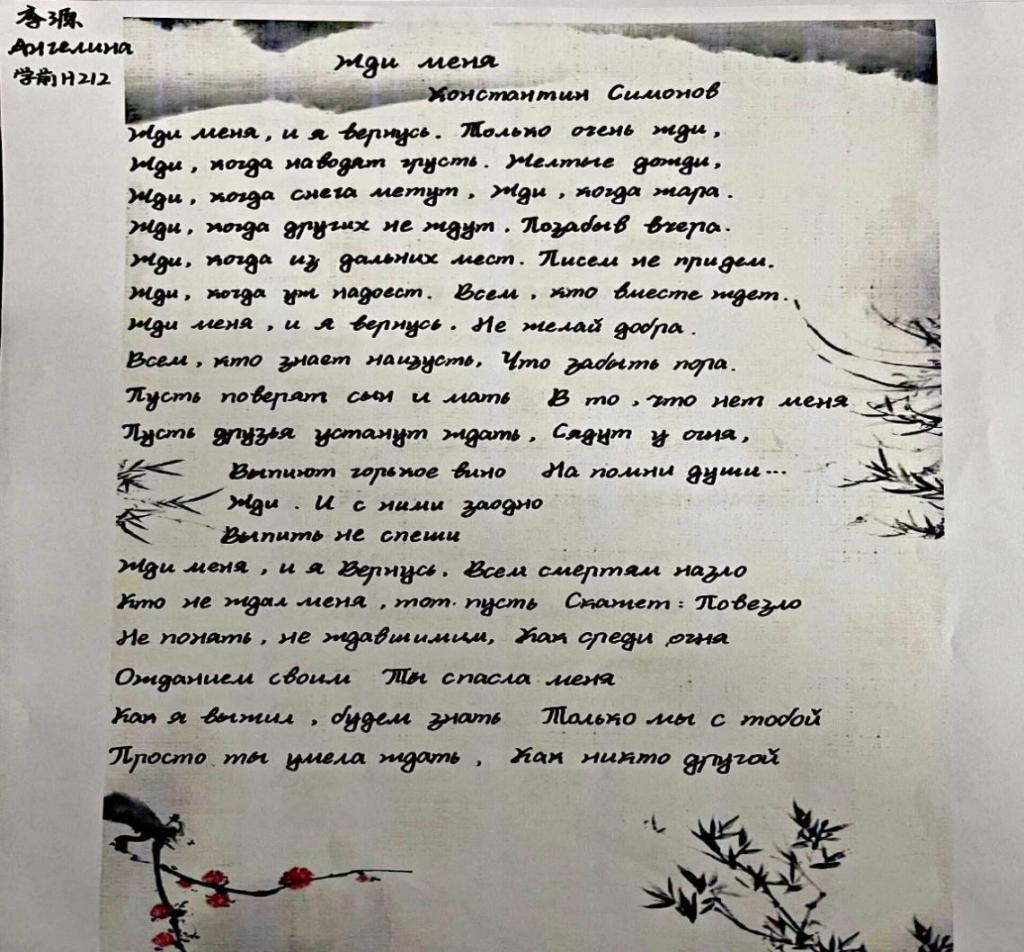 李源
Ангелина
学前H212
Жди меня
Константин Симонов
Жди меня, и я вернусь. Только очень жди,
Жди, когда наводят грусть. Желтые дожди,
Жди, когда снега метут, Жди, когда жара.
Жди, когда других не ждут. Позабыв вчера.
Жди, когда из дальних мест. Писем не придем.
Жди, когда уж надоест. Всем, кто вместе ждет.
Жди меня, и я вернусь. Не желай добра.
Всем, кто знает наизусть, Что забыть пора.
Пусть поверят сын и мать В то, что нет меня
Пусть друзья устанут ждать, Сядут у огня,
Выпиют горькое вино На помни души...
Жди. И с ними заодно
Выпить не спеши
Жди меня, и я Вернусь. Всем смертям назло
Кто не ждал меня, тот. пусть Скажет: Повезло
Не понять, не ждавшимим, Как среди огня
Ожданием своим Ты спасла меня
Как я выжил, будем знать Только мы с тобой
Просто ты умела ждать, Как никто другой